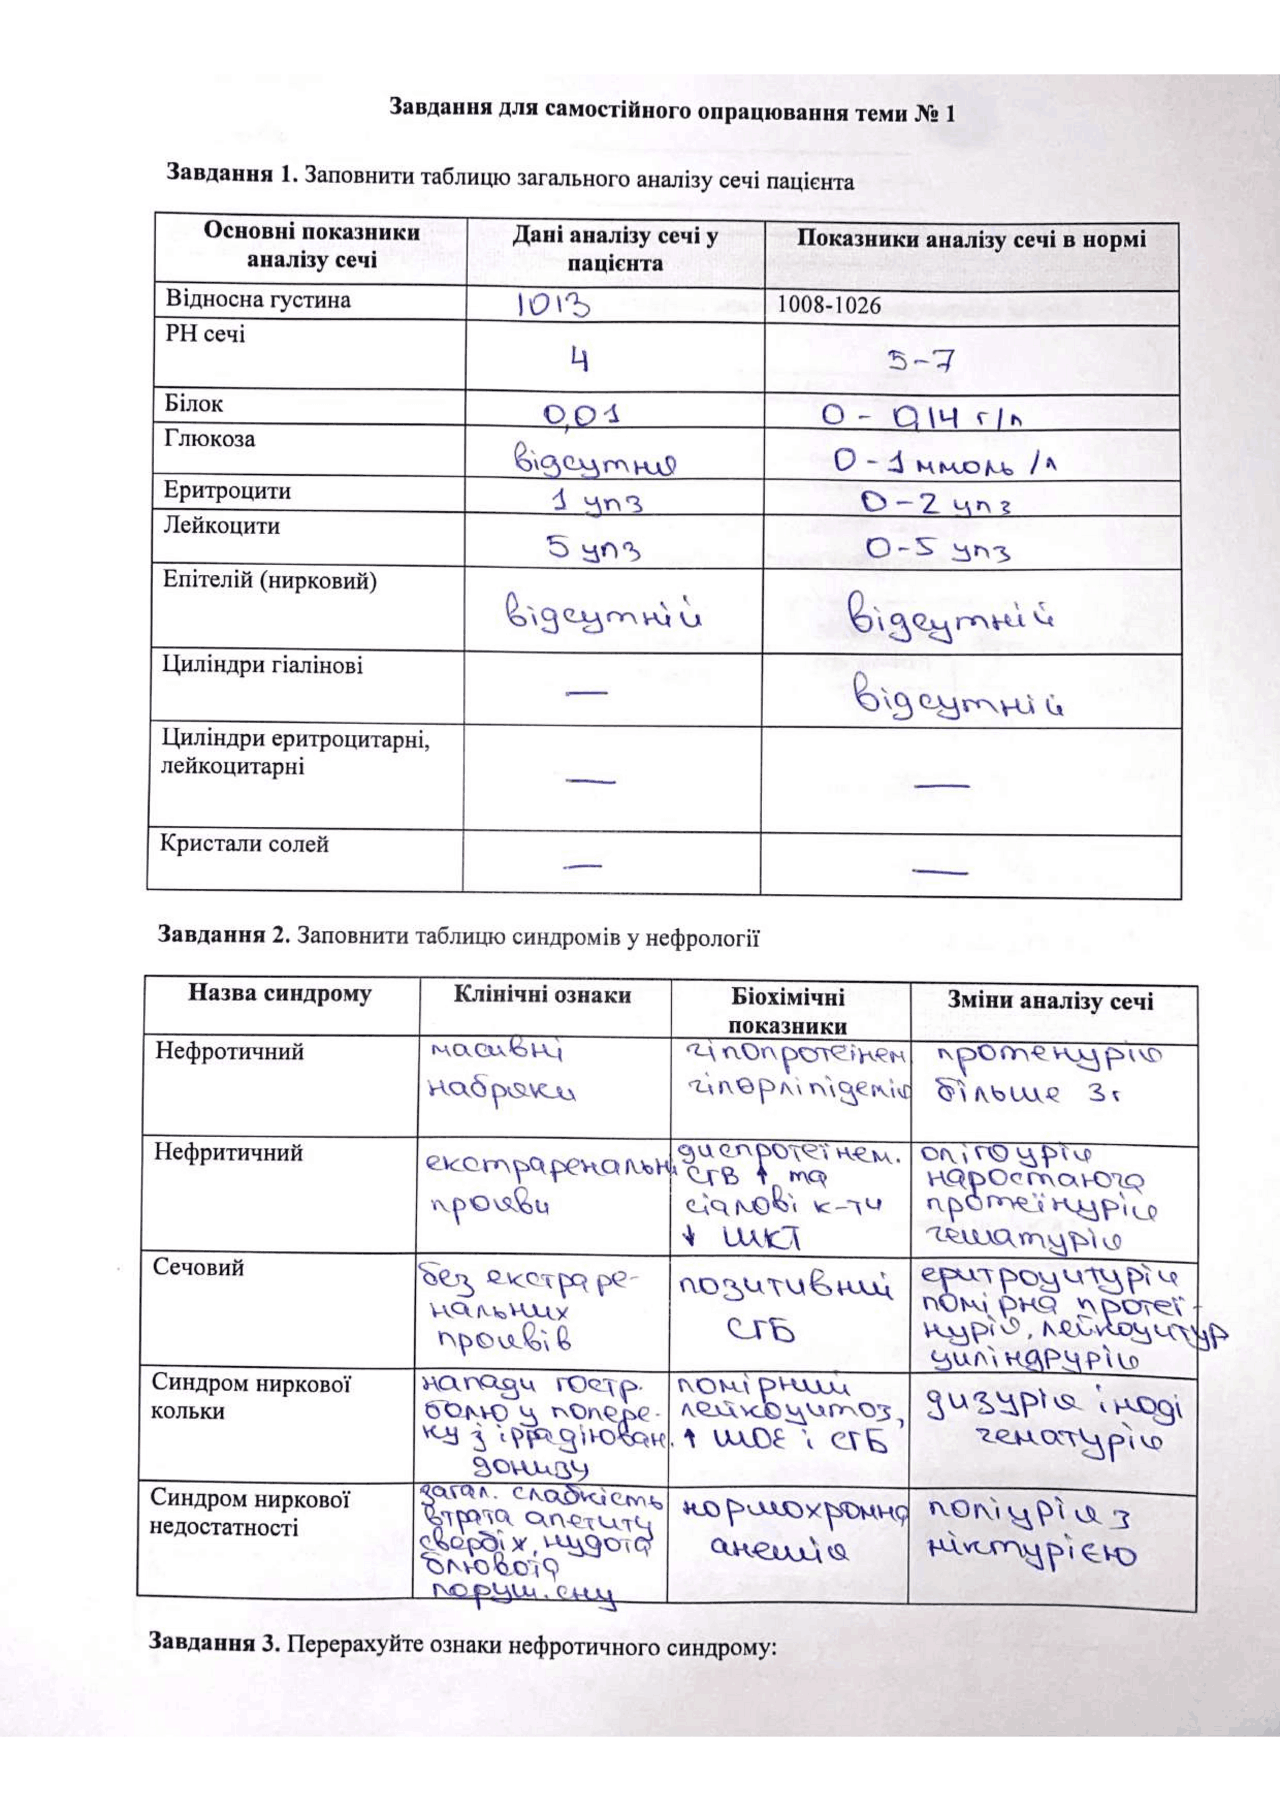 Завдання для самостійного опрацювання теми № 1
Завдання 1. Заповнити таблицю загального аналізу сечі пацієнта
Основні показники аналізу сечі | Дані аналізу сечі у пацієнта | Показники аналізу сечі в нормі
Відносна густина | 1013 | 1008-1026
РН сечі | 4 | 5-7
Білок | 0,01 | 0 - 0,14 г/л
Глюкоза | відсутня | 0 - 1 ммоль/л
Еритроцити | 1 упз | 0-2 упз
Лейкоцити | 5 упз | 0-5 упз
Епітелій (нирковий) | відсутній | відсутній
Циліндри гіалінові | — | відсутній
Циліндри еритроцитарні, лейкоцитарні | — | —
Кристали солей | — | —
Завдання 2. Заповнити таблицю синдромів у нефрології
Назва синдрому | Клінічні ознаки | Біохімічні показники | Зміни аналізу сечі
Нефротичний | масивні набряки | гіпопротеінем гіперліпідемія | протенурія більше 3г
Нефритичний | екстраренальні прояви | диспротеїнем. СГВ ↑ та сіалові к-ти ↓ ШКТ | олігоурія наростаюча протеїнурія гематурія
Сечовий | без екстраре- нальних проявів | позитивний СГБ | еритроцитурія помірна протеї- нурія, лейкоцитур циліндрурія
Синдром ниркової кольки | напади гостр. болю у попере- ку з іррадіюван. донизу | помірний лейкоцитоз, ↑ ШОЕ і СГБ | дизурія іноді гематурія
Синдром ниркової недостатності | загал. слабкість втрата апетиту свербіх, нудота блювота поруш. сну | нормохромна анемія | поліурія з ніктурією
Завдання 3. Перерахуйте ознаки нефротичного синдрому: